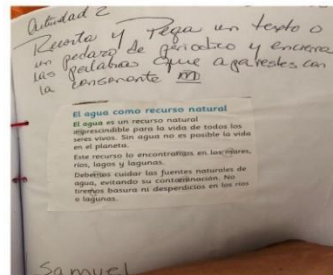 Actividad 2
Recorta y Pega un texto o
un pedazo de periodico y encierra
las palabras que agarestes con
la consonante m
El agua como recurso natural
El agua es un recurso natural
imprescindible para la vida de todos los
seres vivos. Sin agua no es posible la vida
en el planeta.
Este recurso lo encontramos en los mares,
rios, lagos y lagunas.
Debemos cuidar las fuentes naturales de
agua, evitando su contaminación. No
tiremos basura ni desperdicios en los rios
o lagunas.
Samuel